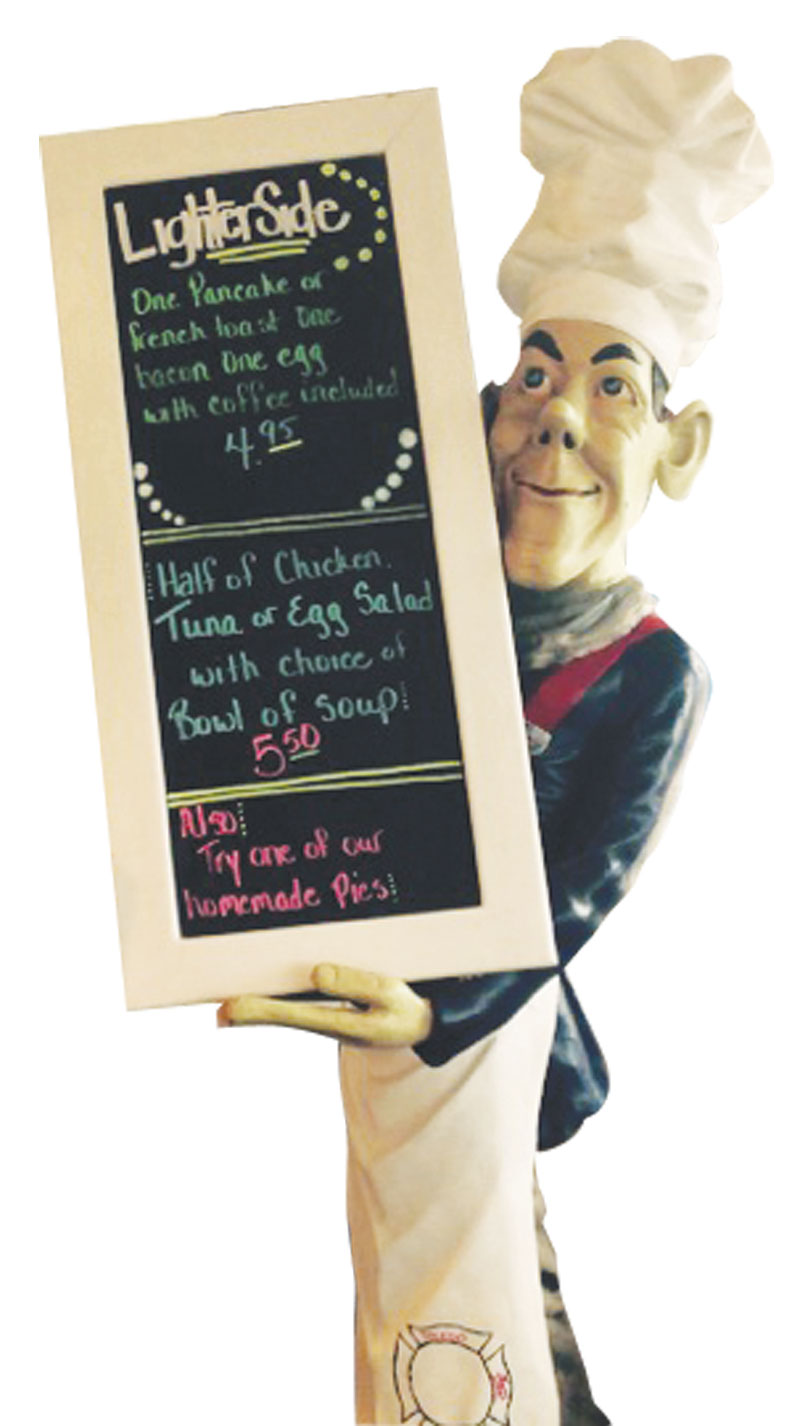 LighterSide
One Pancake or
french toast One
bacon One egg
with coffee included
4.95
Half of Chicken.
Tuna or Egg Salad
with choice of
Bowl of soup
5 50
Also
Try one of our
homemade Pies